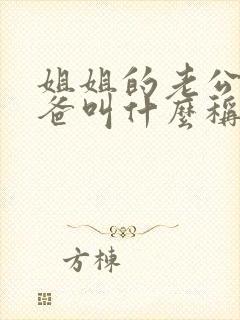 姐姐的老公
爸叫什麼稱
方棟